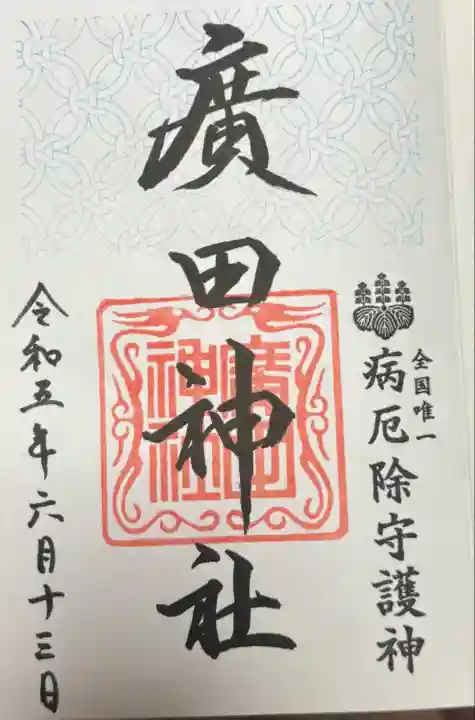 全国唯一
病厄除守護神
廣田神社
廣田神社
令和五年六月十三日